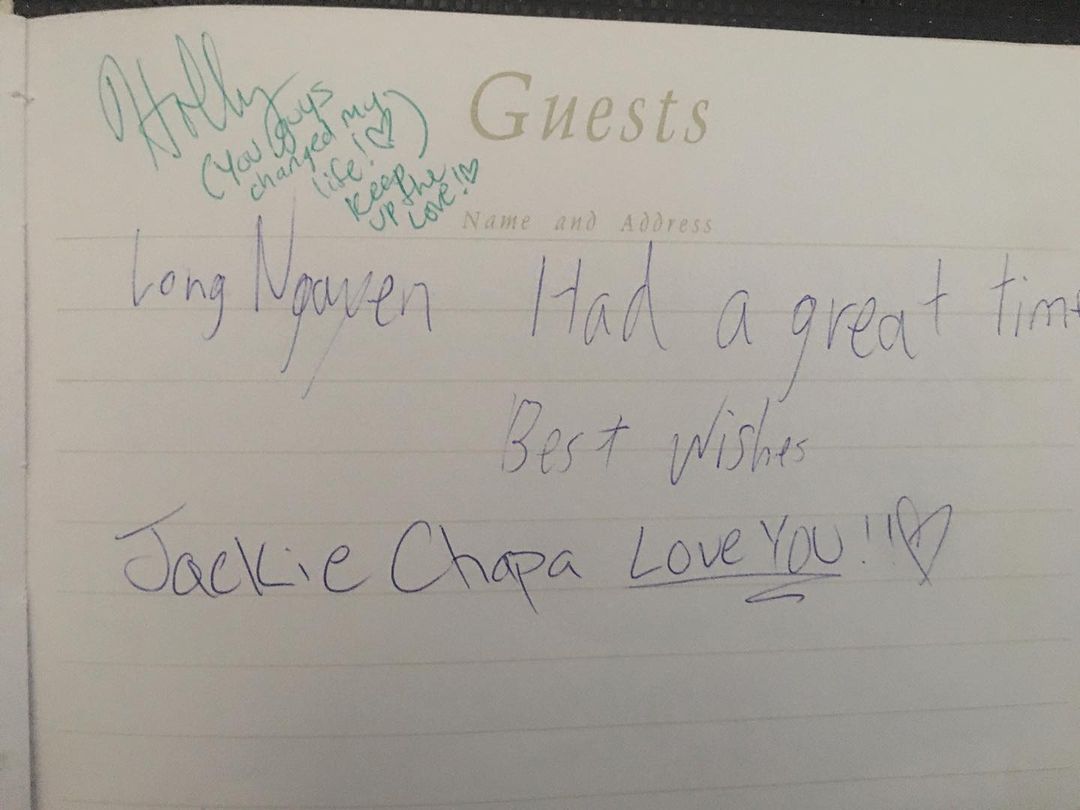 Guests
Holly
(You guys
changed my
life! ♡)
Keep
up the
love! ♡
Name and Address
Long Nguyen Had a great time
Best Wishes
Jackie Chapa Love You!! ♡